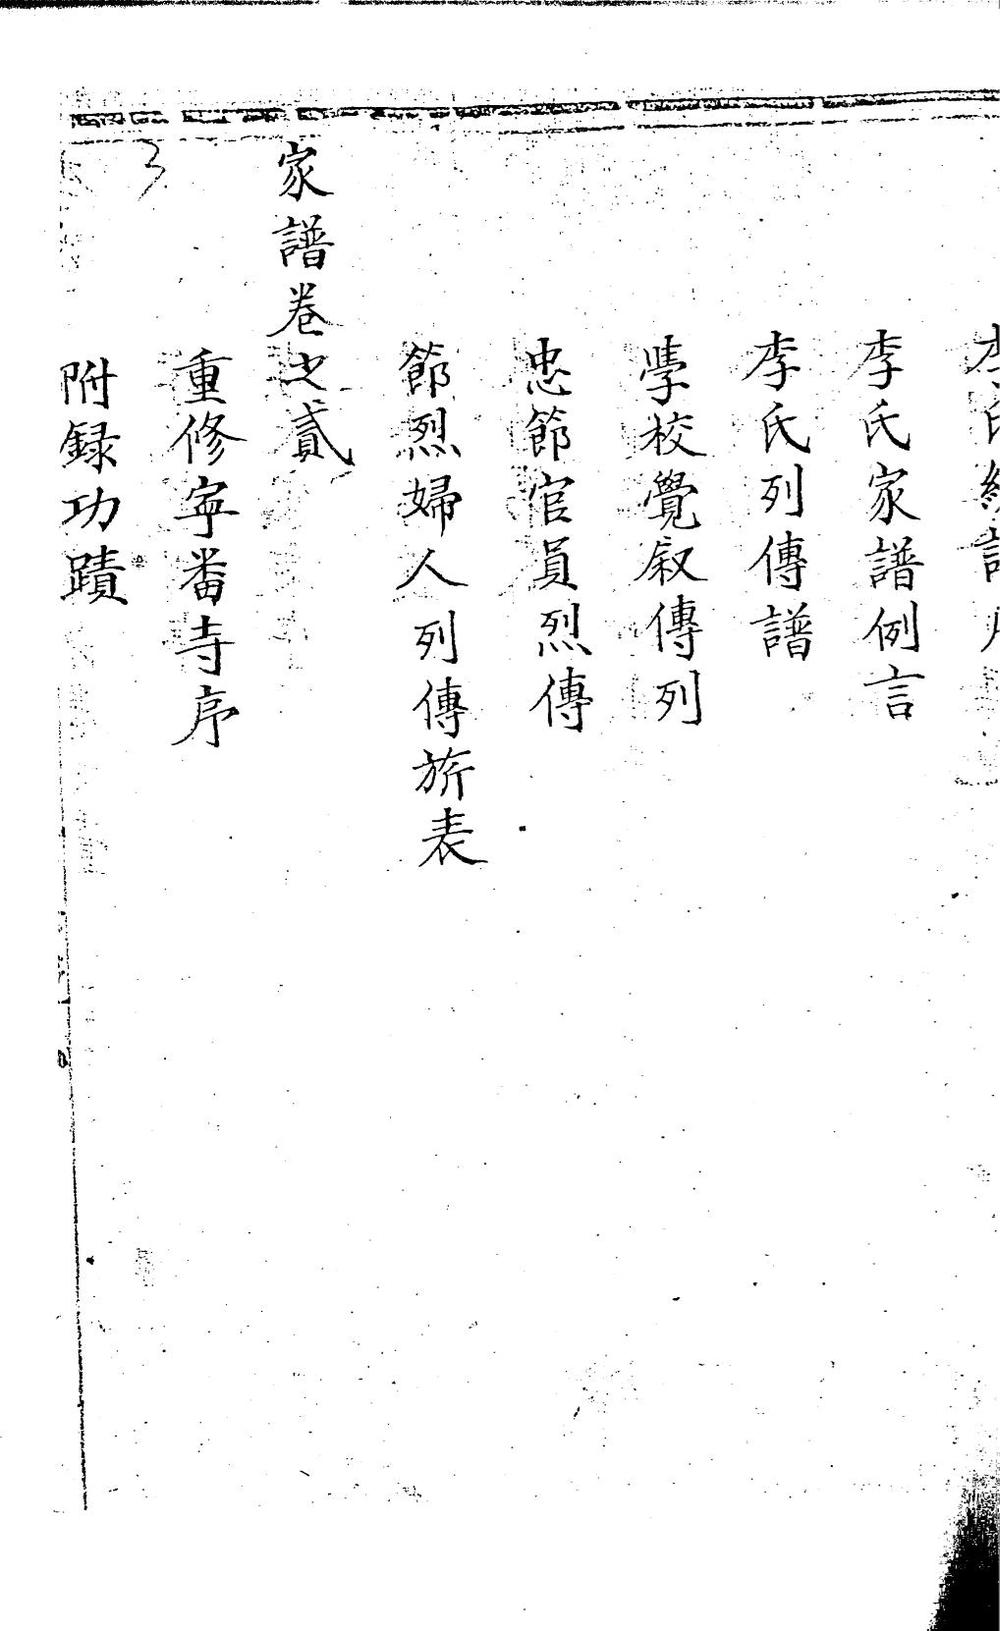 李氏
李氏家譜例言
李氏列傳譜
學校覺叙傳列
忠節官員烈傳
節烈婦人列傳旂表
家譜卷之貳
重修寧番寺序
附録功蹟
3